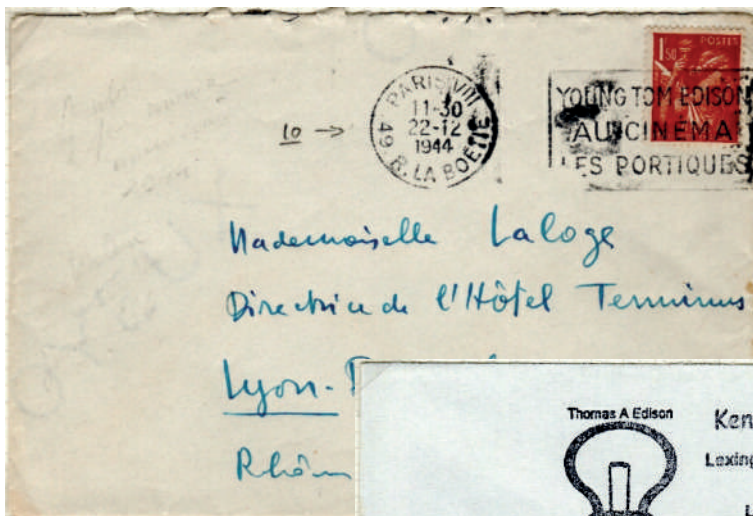 1F50 POSTES
PARIS VIII
11-30
22-12
1944
49 R. LA BOETIE
YOUNG TOM EDISON
AU CINEMA
LES PORTIQUES
10 →
Mademoiselle Laloge
Directrice de l'Hôtel Terminus
Lyon-
Rhôn
Thomas A Edison
Ken
Lexing